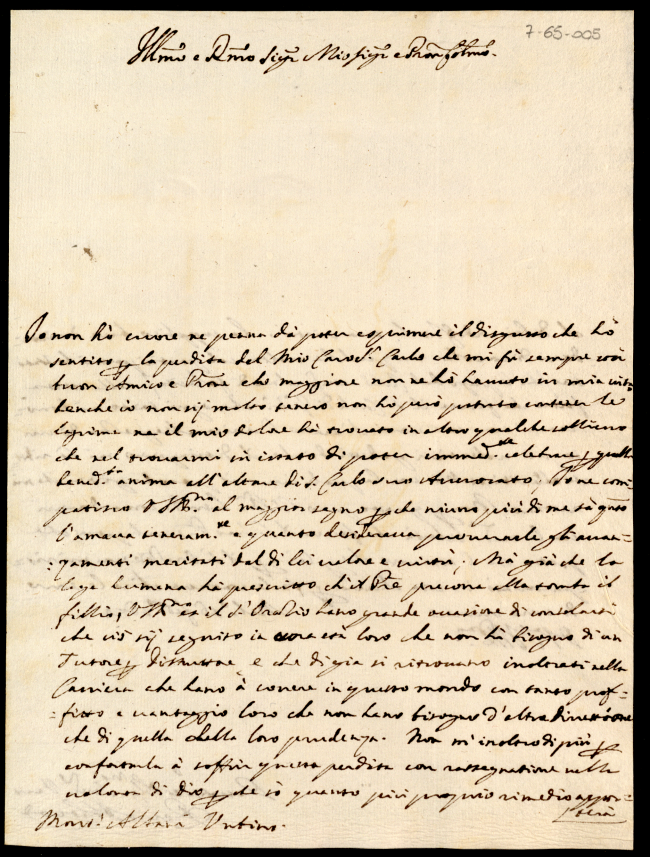 7-65-005
Illmo e Rmo Sigr Mio Sigr e Pron Colmo.
Io non hò cuore ne penna dà poter esprimere il disgusto che hò
sentito p la perdita del Mio Caro S.r Carlo che mi fù sempre così
buon Amico e Prone che maggiore non ne hò hauuto in mia uita
benche io non sij molto tenero non hò però potuto contener le
lagrime ne il mio dolore hà trouato in altro qualche sollieuo
che nel trouarmi in istato di poter immed.te celebrare p quella
bened.ta anima all'altare di S. Carlo suo Auuocato. Io ne com-
patisco VS Illma al maggior segno p che niuno più di me sà q.to
l'amaua teneram.te e quanto desideraua procurarle gli auan-
:gamenti meritati dal di lui ualore e uirtù; Mà già che la
lege humana hà prescritto ch'il Pre precorra alla tomba il
figlio, VS Illma et il S.r Orazio hano grande occasione di consolarsi
che ciò sij seguito in età loro che non hà bisogno di un
Tutore p e che di gia si ritrouano inoltrati nella
Carriera che hano à correre in questo mondo con tanto prof-
:fitto e uantaggio loro che non hano bisogno d'altra direttione
che di quella della loro prudenza. Non m'inoltro di più p
confortarla à soffrir questa perdita con rassegnatione nella
uolontà di Dio p che sò quanto più proprio rimedio appor-
terà
Mons.r Urbino.